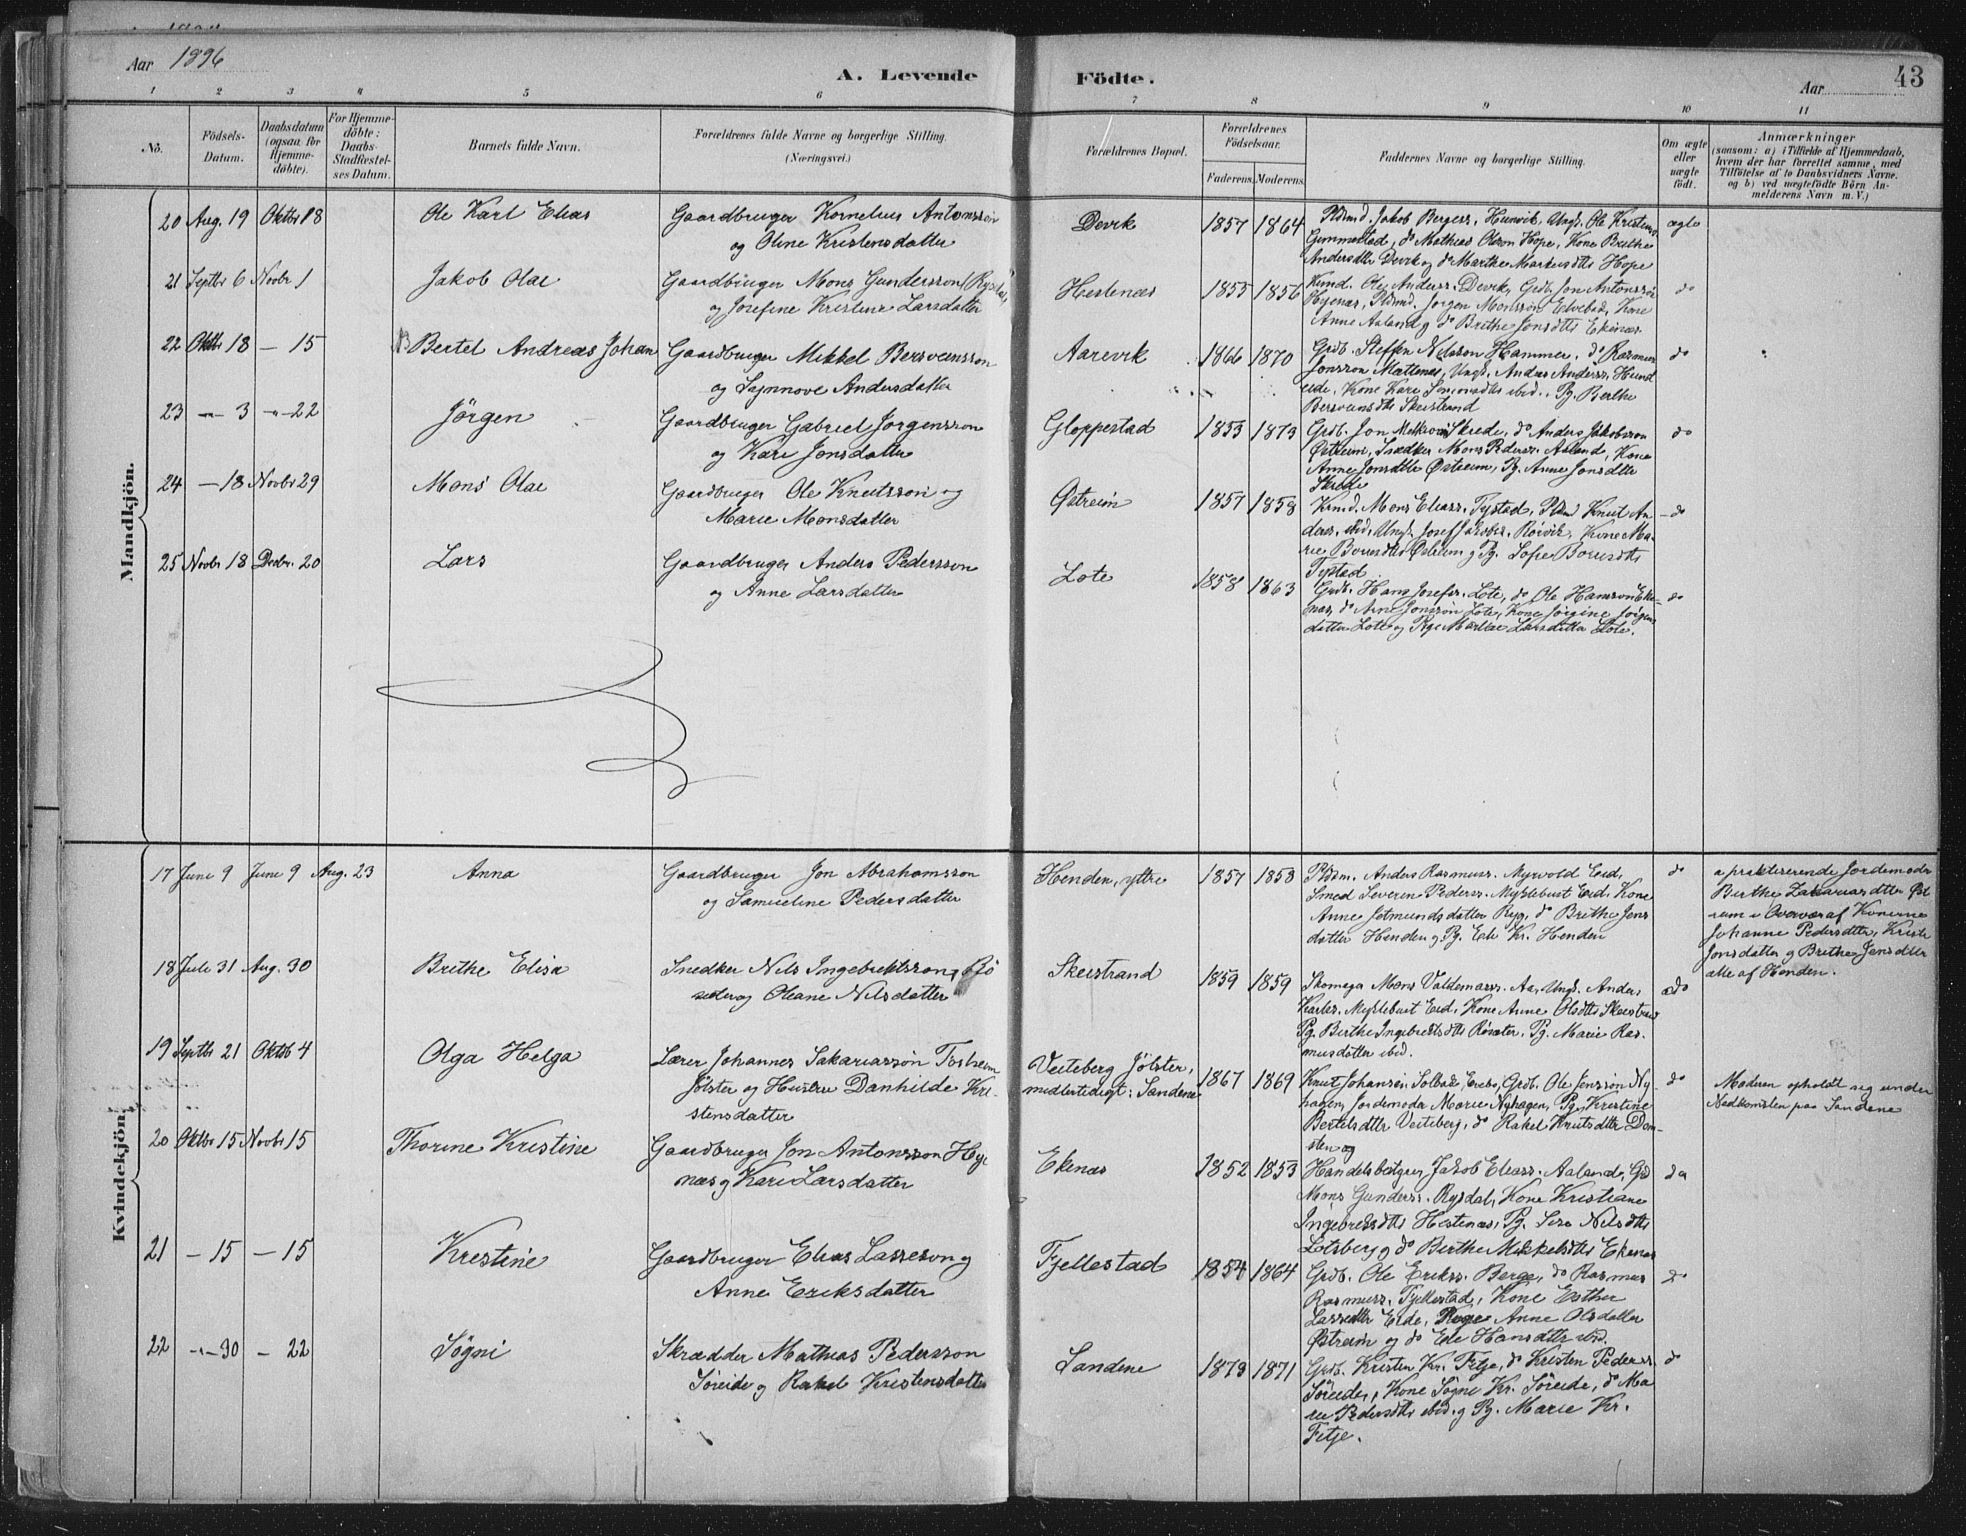 Aar 1896
A. Levende
Födte.
Aar
43
1 2 3 4 5 6 7 8 9 10 11
No.
Födsels-
Datum.
Daabsdatum
(ogsaa for
Hjemme-
döbte).
For Hjemme-
döbte:
Daabs-
Stadfæstel-
ses Datum.
Barnets fulde Navn.
Forældrenes fulde Navne og borgerlige Stilling.
(Næringsvei.)
Forældrenes Bopæl.
Forældrenes
Födselsaar.
Faderens. Moderens.
Faddernes Navne og borgerlige Stilling.
Om ægte
eller
uægte
födt.
Anmærkninger
(saasom: a) i Tilfælde af Hjemmedaab,
hvem der har forrettet samme, med
Tilföielse af to Daabsvidners Navne.
og b) ved uægtefödte Börn An-
melderens Navn m. V.)
Mandkjön.
20 Aug. 19 Oktbr 18
Ole Karl Elias
Gaardbruger Kornelius Antonssen
og Oline Kristensdatter
Devik
1857 1864
Pldmd. Jakob Bergess. Hunvik, Ungk. Ole Kristens.
Gimmestad, do Mathias Olson Hope, Kone Brithe
Andersdtr Devik og do Marthe Markusdtr Hope
ægte
21 Septbr 6 Novbr 1
Jakob Olai
Gaardbruger Mons Gundersson Rysdal
og Josefine Kristine Larsdatter
Hestenæs
1855 1856
Kmd. Ole Anderss. Devik, Grdb. Jon Antonssøn
Hyenæs, Pldmd. Jørgen Monssøn Elvebad, Kone
Anne Aaland og do Brithe Jonsdtr Ekenæs
do
22 Oktbr 18 — 15
Bertel Andreas Johan
Gaardbruger Mikkel Bersveinsson
og Synnove Andersdatter
Aarevik
1866 1870
Grdb. Steffen Nilsson Hammer, do Rasmus
Jonsson Mættenæs, Ungk. Andras Anderss. Hund
eide, Kone Kari Simonsdtr ibid., Pg. Berthe
Bersveinsdtr Skeistrand
do
23 -"- 3 -"- 22
Jörgen
Gaardbruger Gabriel Jorgensson
og Kari Jonsdatter
Gloppestad
1853 1873
Grdb. Jon Mikkelsen Skrede, do Anders Jakobsson
Østreim, Snedker Mons Pederss. Aaland, Kone
Anne Jonsdtr Østreim, Pg. Anne Jonsdtr
Skrede
do
24 — 18 Novbr 29
Mons Olai
Gaardbruger Ole Knutsson og
Marie Monsdatter
Østreim
1857 1858
Kmd. Mons Eliass. Tystad, Pldmd Knut An-
derss. ibid, Ungk. Josef Jakobss. Roivik, Kone Ma-
rie Østreim og Pg. Sofie
Tystad
do
25 Novbr 18 Decbr. 20
Lars
Gaardbruger Anders Pedersson
og Anne Larsdatter
Lote
1858 1863
Grdb. Hans Josefss. Lote, do Ole Hansson Eke-
næs, do Arne Jonssøn Lote, Kone Jørgine Jörgens
datter Lote og Pge Marthe Larsdatter Lote.
do
Kvindekjön.
17 June 9 June 9 Aug. 23
Anna
Gaardbruger Jon Abrahamsson
og Samueline Pedersdatter
Henden, yttre
1857 1858
Pldm. Anders Rasmuss. Myrvold Eid,
Smed Severin Pederss. Myklebust Eid, Kone
Anne Jetmundsdatter Ryg, do Brithe Jens
datter Henden og Pg. Eli Kr. Henden
do
a praktiserende Jordemoder
Birthe Zakariasdtter Øst
reim i Overvær af Konerne
Johanne Pedersdtter, Kristi
Jonsdatter og Brithe Jensdtter
alle af Henden.
18 Juli 31 Aug. 30
Brithe Elisa
Snedker Nils Ingebriktsson Rö
seter og Oleane Nilsdatter
Skeistrand
1859 1859
Skomager Mons Valdemarss. Aa, Ungk. Anders
Karless. Myklebust Eid, Kone Anne Olsdtr Skeistrand
Pg. Birthe Ingebretsdtr Röseter, Pg. Marie Ras-
musdatter ibid.
do
19 Septbr 21 Oktob 4
Olga Helga
Lærer Johannes Sakariassön Torheim
Jölster og Hustru Danhilde Kri-
stensdatter
Veiteberg Jölster,
midlertidigt: Sandene
1867 1869
Knut Johansen Solbak Eid, Grdb. Ole Jenssön Ny-
hagen, Jordemoder Marie Nyhagen, Pg. Kristine
Bertelsdtter Veiteberg, do Rakel Knutsdtter
do
Moderen opholdt sig under
Nedkomsten paa Sandene
20 Oktbr 15 Novbr 15
Thorine Kristine
Gaardbruger Jon Antonsson Hye
næs og Kari Larsdatter
Ekenæs
1852 1853
Handelsbetjent Jakob Eliass. Aaland, Grd
Mons Gunderss. Rysdal, Kone Kristiane
Ingebretsdtr Hestenæs, Pg. Sera Nilsdtr
Lotsberg og do Berthe Mikkelsdtr Ekenæs
do
21 — 15 — 15
Kristine
Gaardbruger Elias Lasseson og
Anne Eriksdatter
Fjellestad
1854 1864
Grdb. Ole Erikss. Berge, do Rasmus
Rasmuss. Fjellestad, Kone Esther
Lassedtr Eide, Pige Anne Olsdatter
Østreim og do Eli Hansdtter ibid.
do
22 -"- 30 -"- 22
Sögni
Skrædder Mathias Pedersson
Söreide og Rakel Kristensdatter
Sandene
1873 1871
Grdb. Kristen Kr. Fitje, do Kristen Pederss.
Söreide, Kone Sögni Kr. Söreide, do Ma
rie Pedersdtr ibid. og Pg. Marie Kr.
Fitje.
do